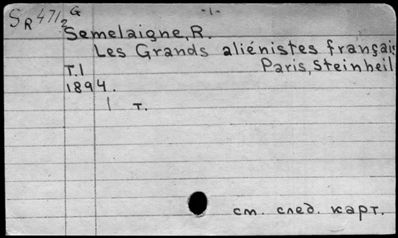 SR 471/2 G
-1-
Semelaigne, R.
Les Grands aliénistes françai
T.1 Paris, Steinheil
1894.
1 т.
см. след. карт.